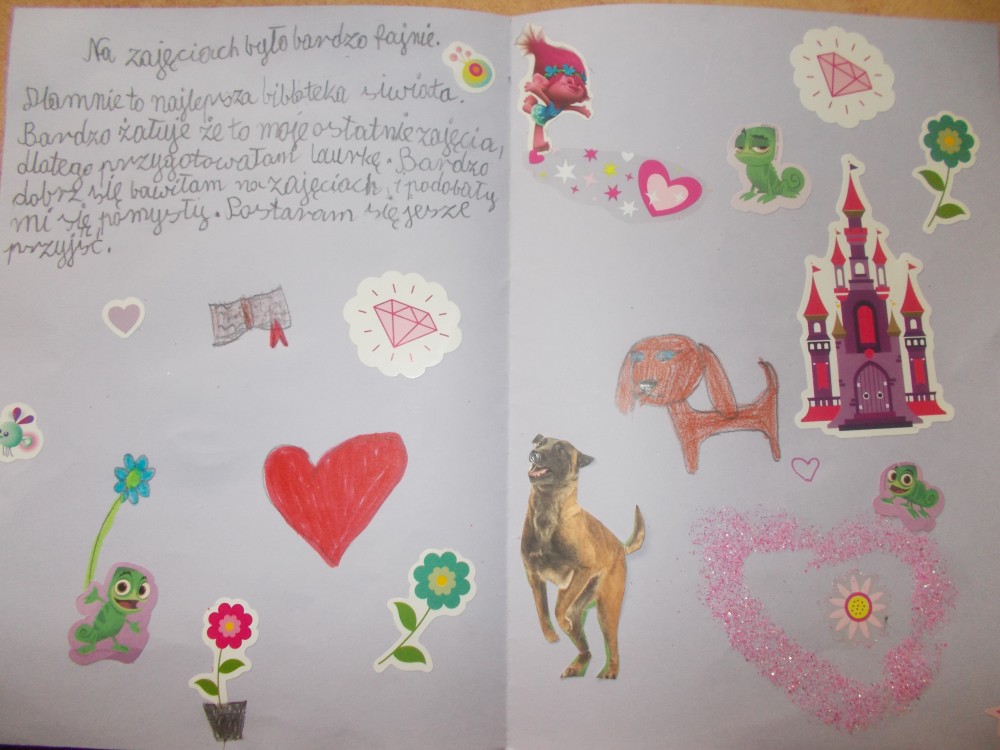 Na zajęciach było bardzo fajnie.
Dlamnie to najlepsza bibloteka siwiata.
Bardzo żałuje że to moje ostatnie zajęcia,
dlatego przygotowałam laurkę. Bardzo
dobrz się bawiłam na zajęciach, i podobały
mi się pomysły. Postaram się jesze
przyjść.